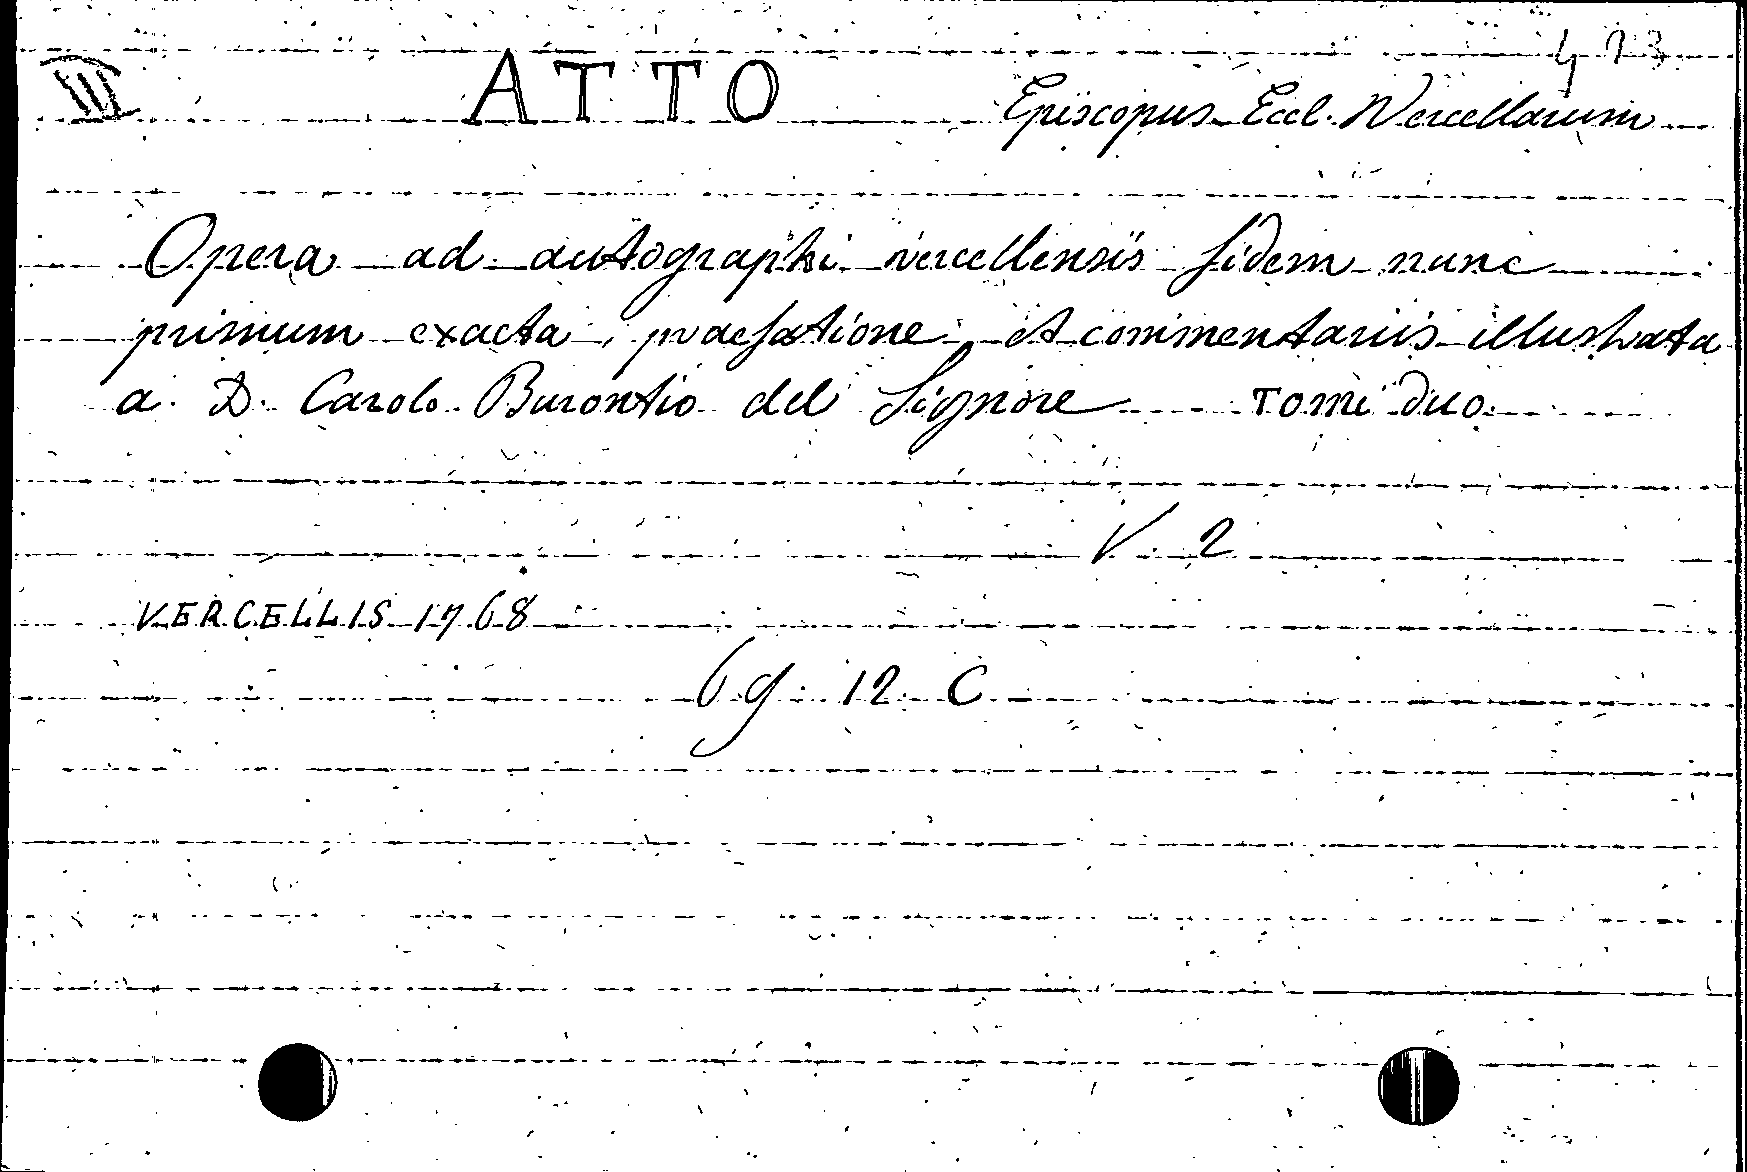 473
III ATTO Episcopus Eccl. Vercellarum
Opera ad autographi vercellensis fidem nunc
primum exacta, praefatione et commentariis illustrata
a D. Carolo Burontio del Signore Tomi duo
V. 2
VERCELLIS 1768
69 12 C